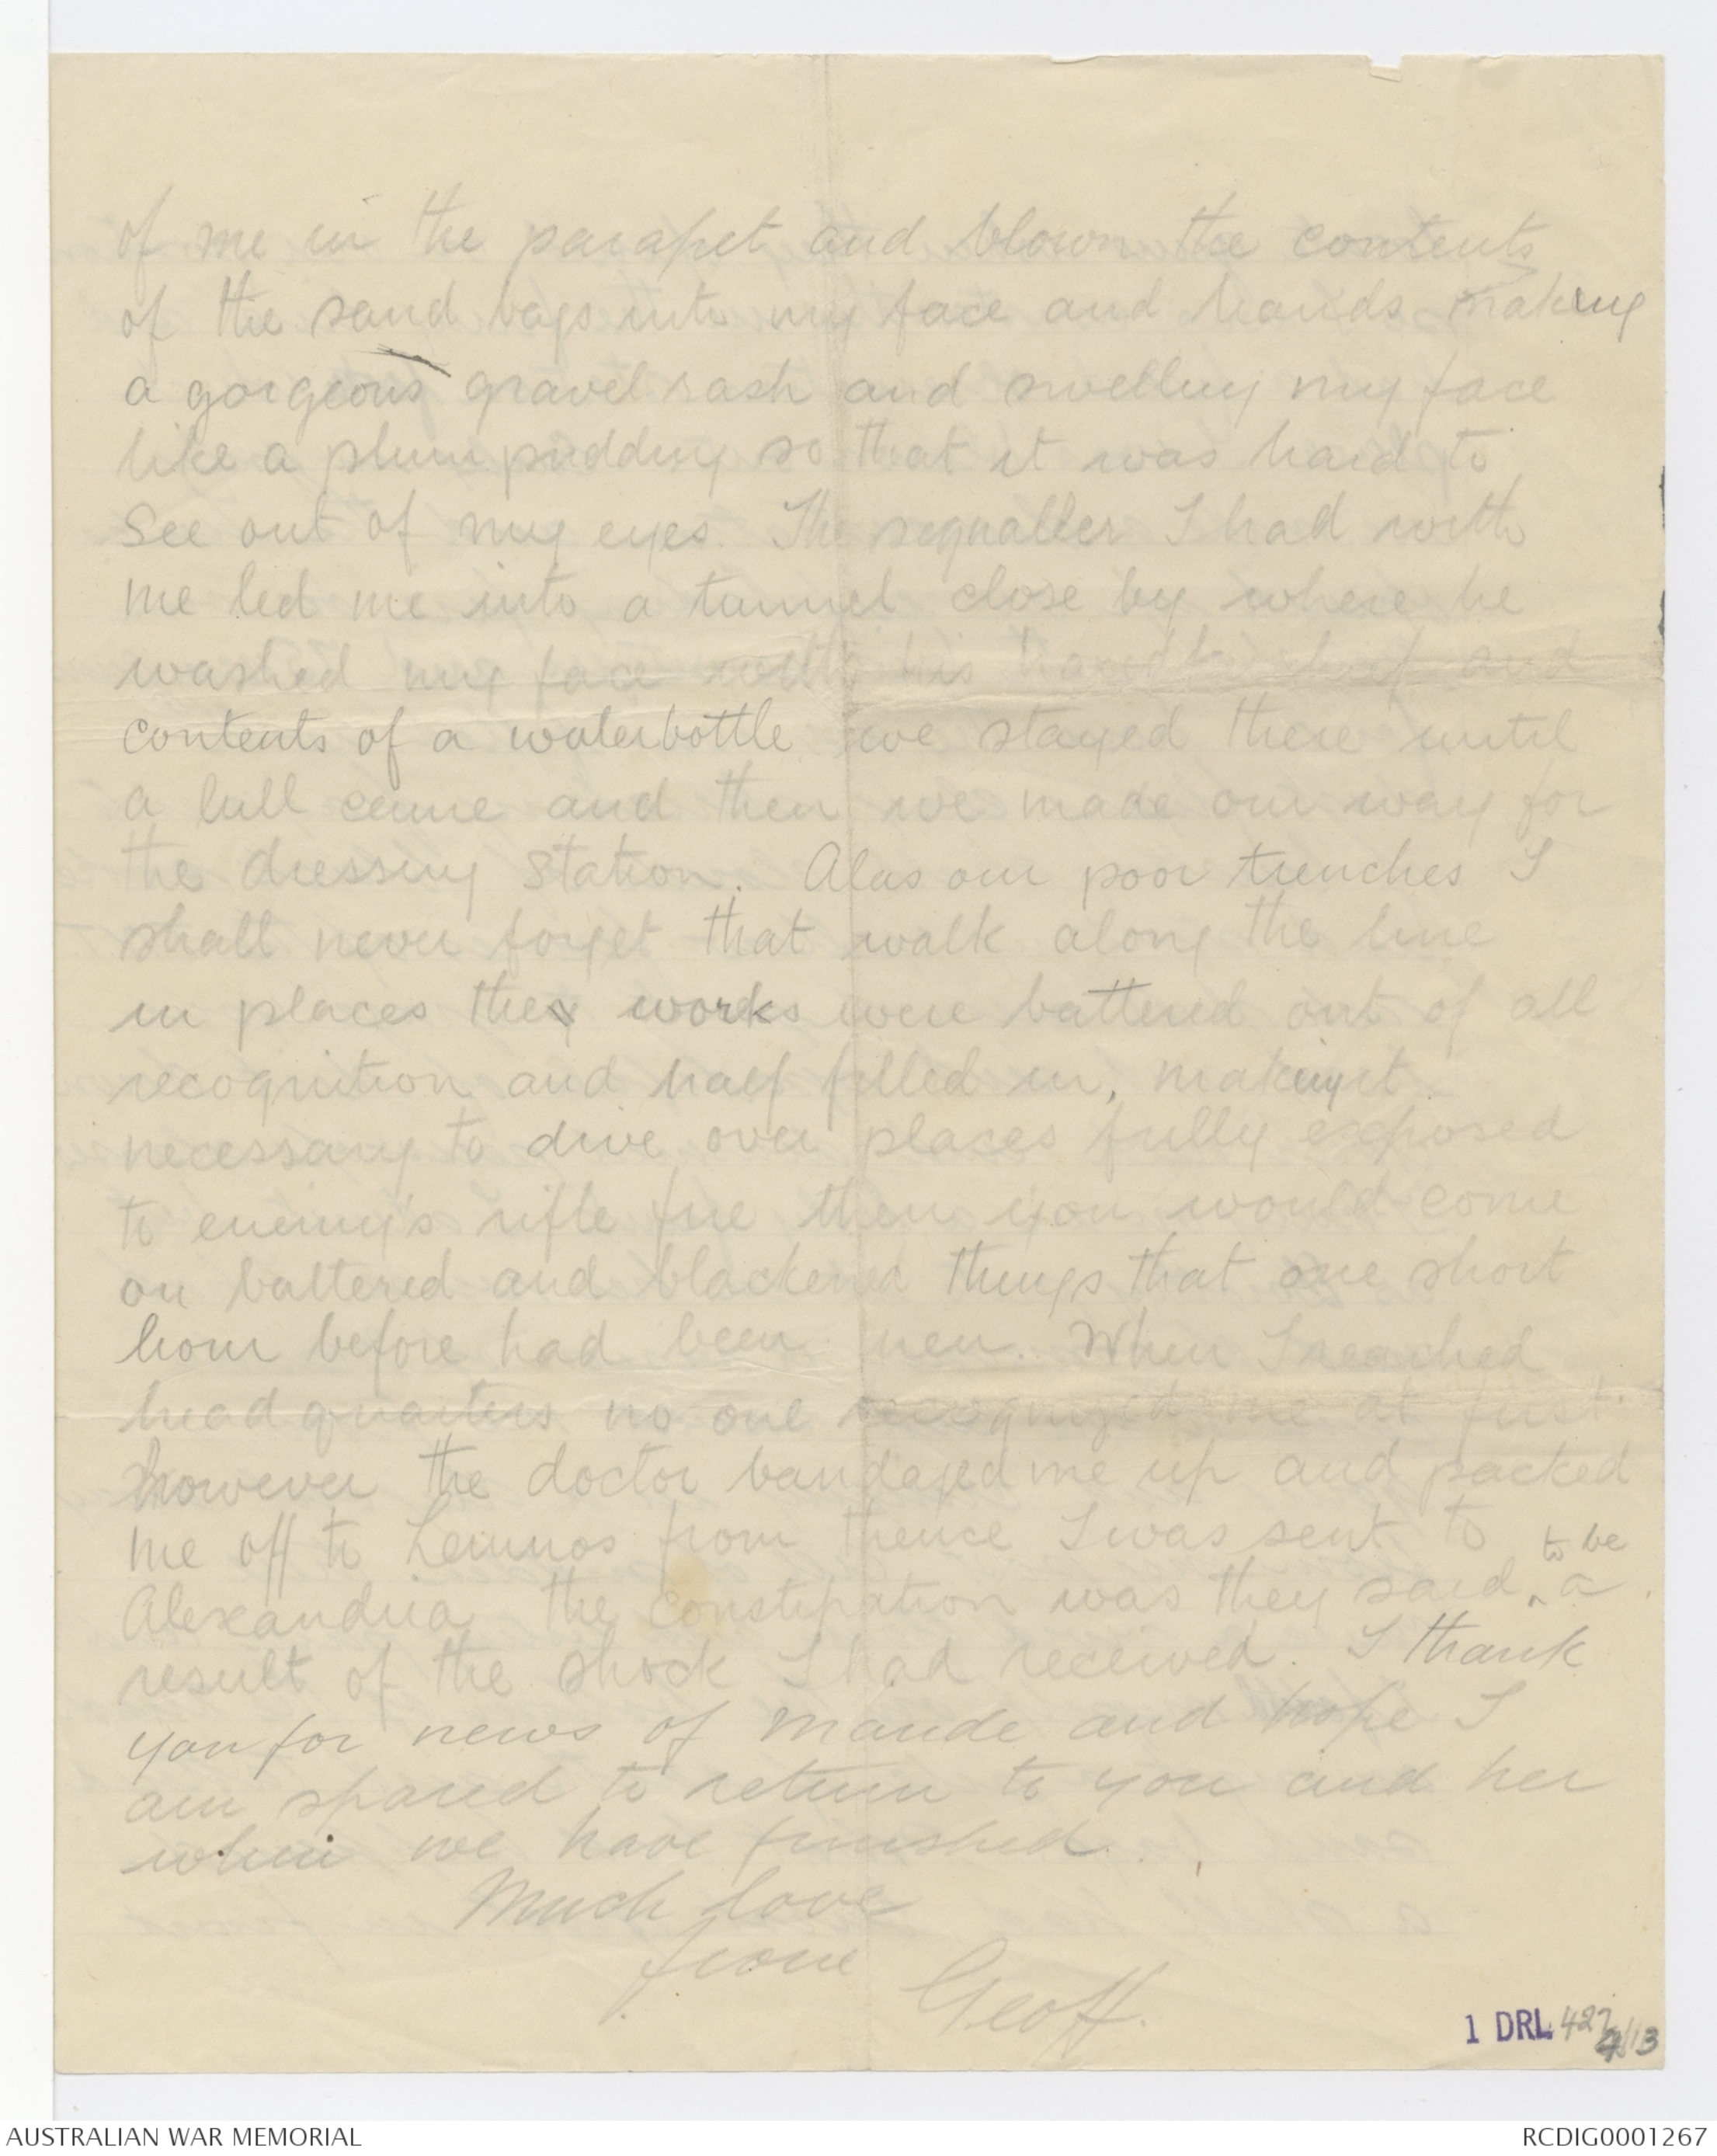 of me in the parapet and blown the contents
of the sand bags into my face and hands making
a gorgeous gravel rash and swelling my face
like a plum pudding so that it was hard to
see out of my eyes. The signaller I had with
me led me into a tunnel close by where he
washed my face with his handkerchief and
contents of a waterbottle we stayed there until
a lull came and then we made our way for
the dressing station. Alas our poor trenches I
shall never forget that walk along the line
in places the works were battered out of all
recognition and half filled in, making it
necessary to dive over places fully exposed
to enemy's rifle fire then you would come
on battered and blackened things that one short
hour before had been men. When I reached
head quarters no one recognized me at first.
however the doctor bandaged me up and packed
me off to Lemnos from thence I was sent to
Alexandria the constipation was they said to be a
result of the shock I had received. I thank
you for news of Maude and hope I
am spared to return to you and her
when we have finished.
Much love
from
Geoff.
1 DRL 427
4/13
AUSTRALIAN WAR MEMORIAL
RCDIG0001267